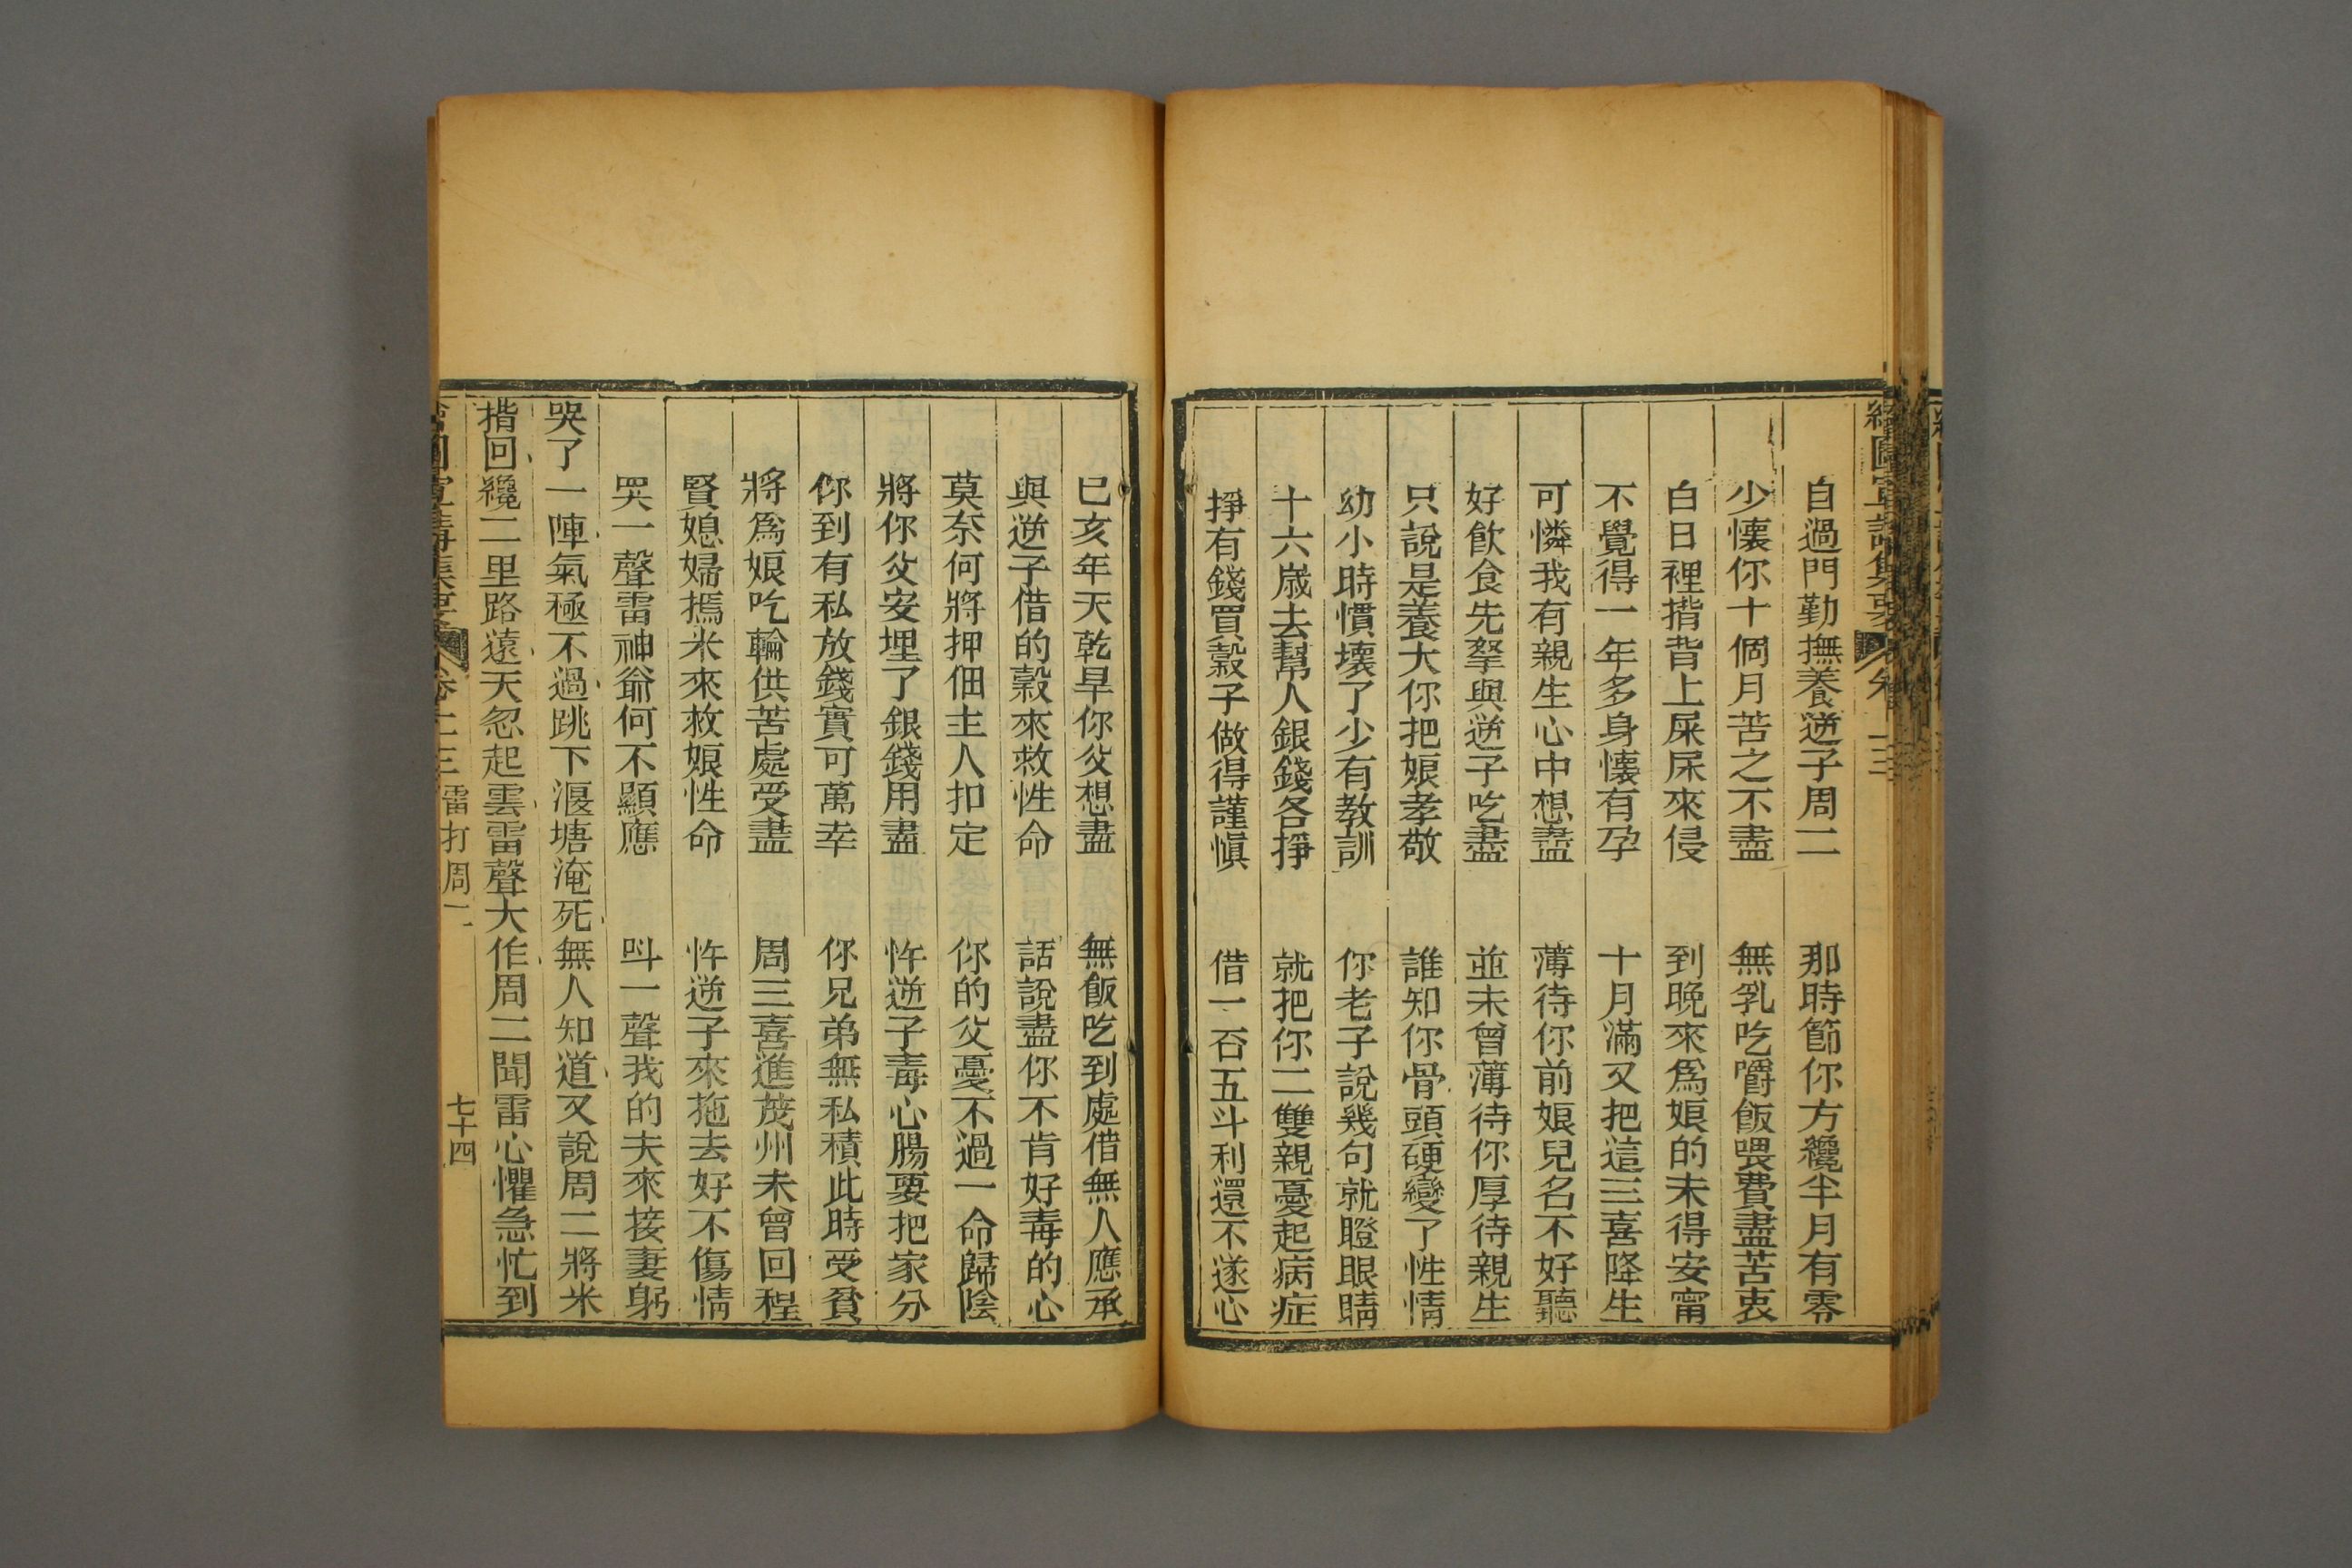 繪圖宣講集要
卷十三
自過門勤撫養逆子周二 那時節你方纔半月有零
少懷你十個月苦之不盡 無乳吃嚼飯喂費盡苦衷
白日裡揹背上屎尿來侵 到晚來爲娘的未得安甯
不覺得一年多身懷有孕 十月滿又把這三喜降生
可憐我有親生心中想盡 薄待你前娘兒名不好聽
好飲食先拏與逆子吃盡 並未曾薄待你厚待親生
只說是養大你把娘孝敬 誰知你骨頭硬變了性情
幼小時慣壞了少有教訓 你老子說幾句就瞪眼睛
十六歲去幫人銀錢各掙 就把你二雙親憂起病症
掙有錢買穀子做得謹慎 借一石五斗利還不遂心
已亥年天乾旱你父想盡 無飯吃到處借無人應承
與逆子借的穀來救性命 話說盡你不肯好毒的心
莫奈何將押佃主人扣定 你的父憂不過一命歸陰
將你父安埋了銀錢用盡 忤逆子毒心腸要把家分
你到有私放錢實可萬幸 你兄弟無私積此時受貧
將爲娘吃輪供苦處受盡 周三喜進茂州未曾回程
賢媳婦撝米來救娘性命 忤逆子來拖去好不傷情
哭一聲雷神爺何不顯應 叫一聲我的夫來接妻躬
哭了一陣氣極不過跳下堰塘淹死無人知道又說周二將米
揹回纔二里路遠天忽起雲雷聲大作周二聞雷心懼急忙到
繪圖宣講集要 卷十三 雷打周二 七十四